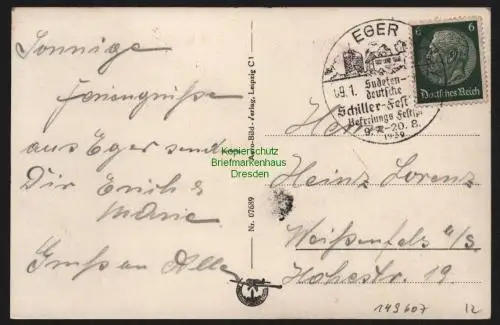 Sonnige
Feriengrüße
aus Eger senden
Dir Erich &
Marie
Gruß an Alle
Kopierschutz
Briefmarkenhaus
Dresden
Nr. 07689
-Bild-Verlag, Leipzig C 1
EGER
Sudeten-
deutsche
Schiller-Fest
Befreiungs
20. 8.
1939
6 6
Deutsches Reich
Herrn
Heinz Lorenz
Weißenfels a/S
Hohestr. 19
149607 12